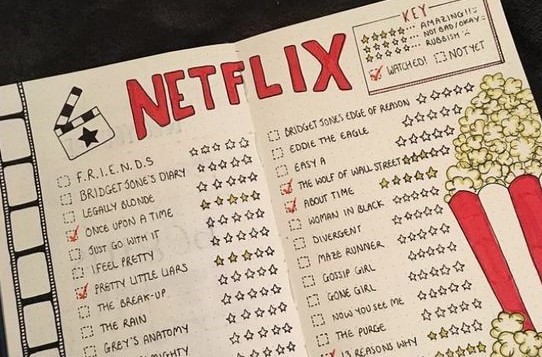 NETFLIX
KEY
AMAZING!!
NOT BAD/OKAY
RUBBISH
WATCHED! NOT YET
F.R.I.E.N.D.S
BRIDGET JONE'S DIARY
LEGALLY BLONDE
ONCE UPON A TIME
JUST GO WITH IT
I FEEL PRETTY
PRETTY LITTLE LIARS
THE BREAK-UP
THE RAIN
GREY'S ANATOMY
ALMIGHTY
BRIDGET JONES EDGE OF REASON
EDDIE THE EAGLE
EASY A
THE WOLF OF WALL STREET
ABOUT TIME
WOMAN IN BLACK
DIVERGENT
MAZE RUNNER
GOSSIP GIRL
GONE GIRL
NOW YOU SEE ME
THE PURGE
13 REASONS WHY